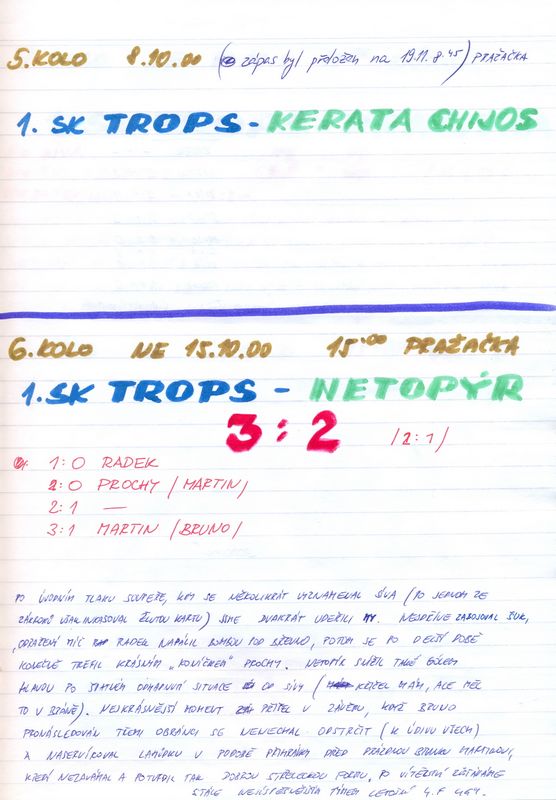 5. KOLO 8.10.00 (zápas byl přeložen na 19.11. 8:45) PRAŽAČKA
1. SK TROPS - KERATA CHIJOS
6. KOLO NE 15.10.00 15:00 PRAŽAČKA
1. SK TROPS - NETOPÝR
3:2 /2:1/
1:0 RADEK
2:0 PROCHY /MARTIN/
2:1 —
3:1 MARTIN /BRUNO/
PO ÚVODNÍM TLAKU SOUPEŘE, KDY SE NĚKOLIKRÁT VYZNAMENAL SÍVA (PO JEDNOM ZE
ZÁKROKŮ VŠAK INKASOVAL ŽLUTOU KARTU) JSME DVAKRÁT UDEŘILI. NEJDŘÍVE ZABOJOVAL ŠUK,
ODRAŽENÝ MÍČ RADEK NAPÁLIL BOMBOU POD BŘEVNO, POTOM SE PO DELŠÍ DOBĚ
KONEČNĚ TREFIL KRÁSNÝM „ " PROCHY. NETOPÝR SNÍŽIL TAKÉ GÓLEM
HLAVOU PO ODHAPNUTÍ SITUACE OD SÍVY ( KEJŽEL MÁM, ALE MĚL
TO V BRÁNĚ). NEJKRÁSNĚJŠÍ MOMENT PŘIŠEL V ZÁVĚRU, KDYŽ BRUNO
PRONÁSLEDOVÁN TŘEMI OBRÁNCI SE NENECHAL ODSTRČIT (K ÚDIVU VŠECH)
A NASERVÍROVAL LAHŮDKU V PODOBĚ PŘIHRÁVKY PŘED PRÁZDNOU BRANKU MARTINOVI,
KTERÝ NEZAVÁHAL A POTVRDIL TAK DOBROU STŘELECKOU FORMU. PO VÍTĚZSTVÍ ZŮSTÁVÁME
STÁLE NEJÚSPĚŠNĚJŠÍM TÝMEM LETOŠNÍ 4.F LIGY.